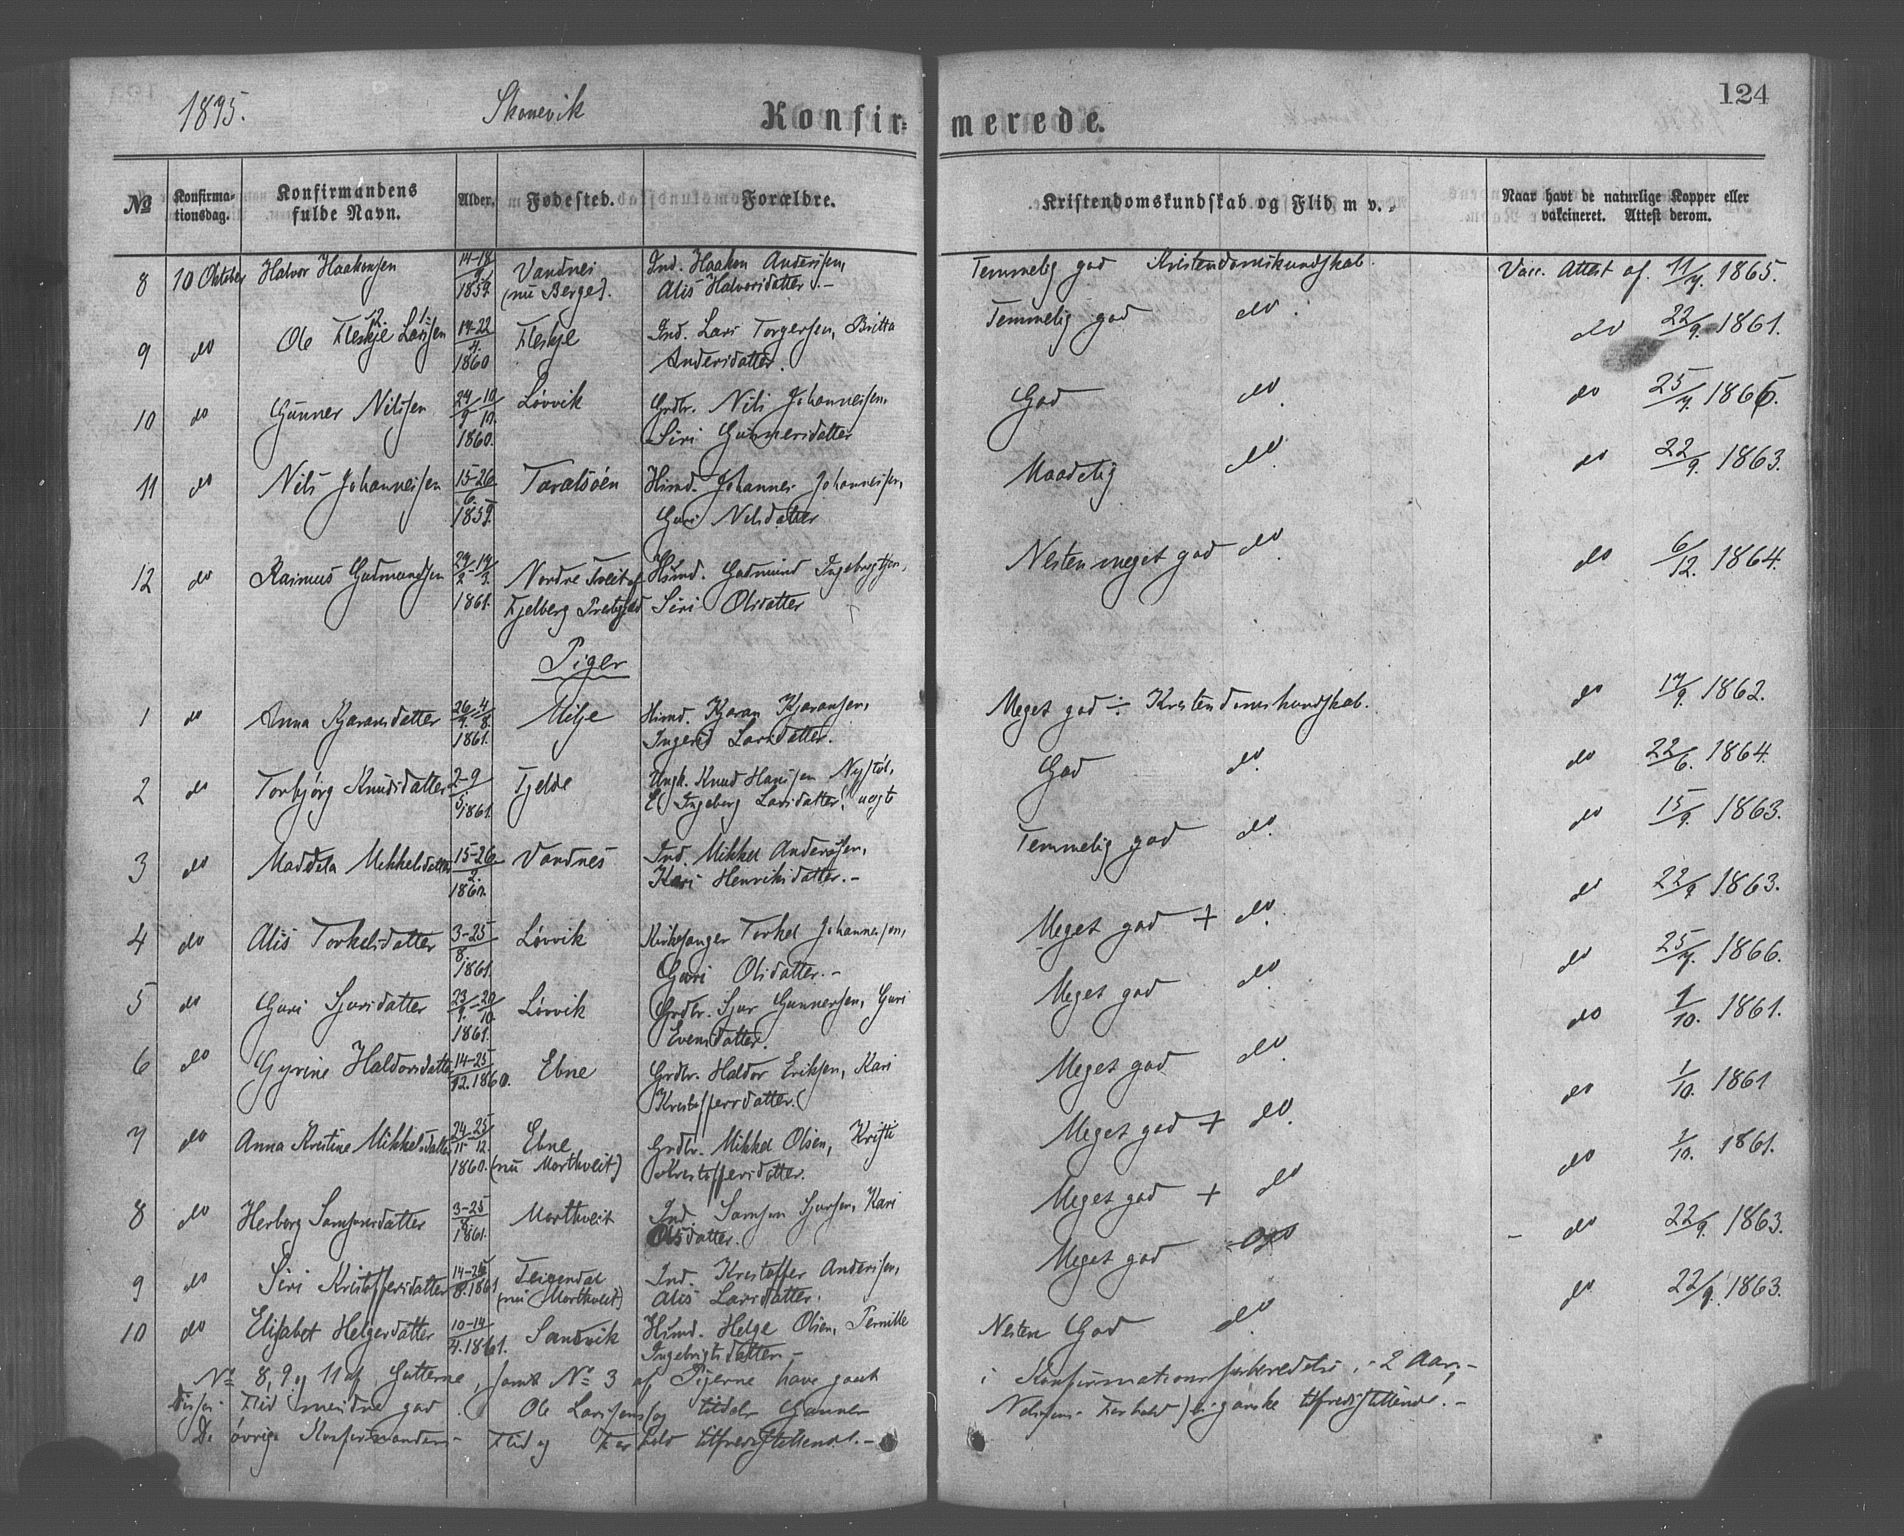 124
1875. Skonevik
Konfir- merede.
№ Konfirma- Konfirmandens Alder. Fødested. Forældre. Kristendomskundskab og Flid m v. Naar havt de naturlige Kopper eller
tionsdag. fulde Navn. vakcineret. Attest derom.
8 10 Oktober Halvor Haakonsen 14-18/9 1859. Vandnes Ind. Haakon Andersen, Temmelig god Kristendomskundskab. Vacc. Attest af 11/7. 1865.
(nu Berge). Alis Halvorsdatter.-
9 do Ole Fleskje Larssen 14-22 1860 Fleskje Ind. Lars Torgersen, Britta Temmelig god do do 22/9. 1861.
Andersdatter.
10 do Gunner Nilssen 24/9 10/10. 1860. Løvvik Grdbr. Nils Johannessen, God do do 25/7. 1866.
Siri Gunnersdatter
11 do Nils Johannessen 15-26/6. 1859. Taralsøen Husmd. Johannes Johannessen, Maadelig do do 22/9. 1863.
Guri Nilsdatter
12 do Rasmus Gudmundsen 24/2-14/3. 1861. Nordre Tveit af Husmd. Gudmund Ingebrigtsen, Nesten meget god do do 6/12. 1864.
Fjelberg Prestegjeld Siri Olsdatter
Piger
1 do Anna Kjaransdatter 26/7-4/8. 1861. Milje Husmd. Kjaran Kjaransen, Meget god ÷ Kristendomskundskab. do 17/9. 1862.
Ingerid Larsdatter.
2 do Torbjørg Knudsdatter 2-9 1861. Tjelde Ungk. Knud Hansen Nystøl, God do do 22/6. 1864.
Ingeborg Larsdatter, uegte
3 do Maddela Mikkelsdatter 15-26/2. Vandnes Ind. Mikkel Andersen, Temmelig god do. do 15/9. 1863.
Kari Henriksdatter.-
4 do Alis Torkelsdatter 3-25/8. 1861. Løvvik Kirkesanger Torkel Johannessen, Meget god + do do 22/9 1863.
Guri Olsdatter.-
5 do Guri Sjursdatter 23/9.-20/10. 1861. Løvvik Grdbr. Sjur Gunnersen, Guri Meget god do do 25/7. 1866.
Evensdatter.
6 do Gyrine Haldorsdatter 14-25/12. 1860. Ebne Grdbr. Haldor Eriksen, Kari Meget god do do 1/10. 1861.
Kristoffersdatter.
7 do Anna Kristine Mikkelsdatter 24/11-25/12. 1860. Ebne Grdbr. Mikkel Olsen, Kristi Meget god + do. do 1/10. 1861
(nu Mortkveit) Kristoffersdatter.
8 do Herborg Samsonsdatter 3-25/8. 1861. Mortkveit Ind. Samson Sjursen, Kari Meget god + do do 1/10. 1861.
Olsdatter.
9 do Siri Kristoffersdatter 14-25/8. 1861 (nu Mortkveit) Ind. Kristoffer Andersen, Meget god do - do 22/9. 1863.
Alis Larsdatter.
10 do Elisabet Helgesdatter 10-14/4. 1861. Sandvik Husmd. Helge Olsen, Pernille Nesten God do. do 22/9. 1863.
Ingebrigtsdatter.-
No 8, 9 og 11 af Gutterne, samt No 3 af Pigerne have gaaet i Konfirmationsforberedelse i 2 Aar.-
Disses Flid mindre god. Ole Larssens (og tildels Gunner Nilssens Forhold) ei ganske tilfredsstillende.-
De øvrige Konfirmanders Flid og Forhold tilfredsstillende.-